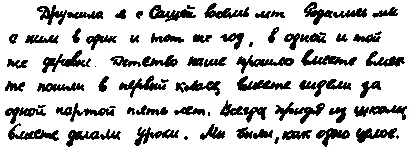 Дружила я с Сашей восемь лет Родились мы
с ним в один и тот же год, в одной и той
же деревне. Детство наше прошло вместе вмес-
те пошли в первый класс вместе сидели за
одной партой пять лет. Всегда придя из школы
вместе делали уроки. Мы были, как одно целое.